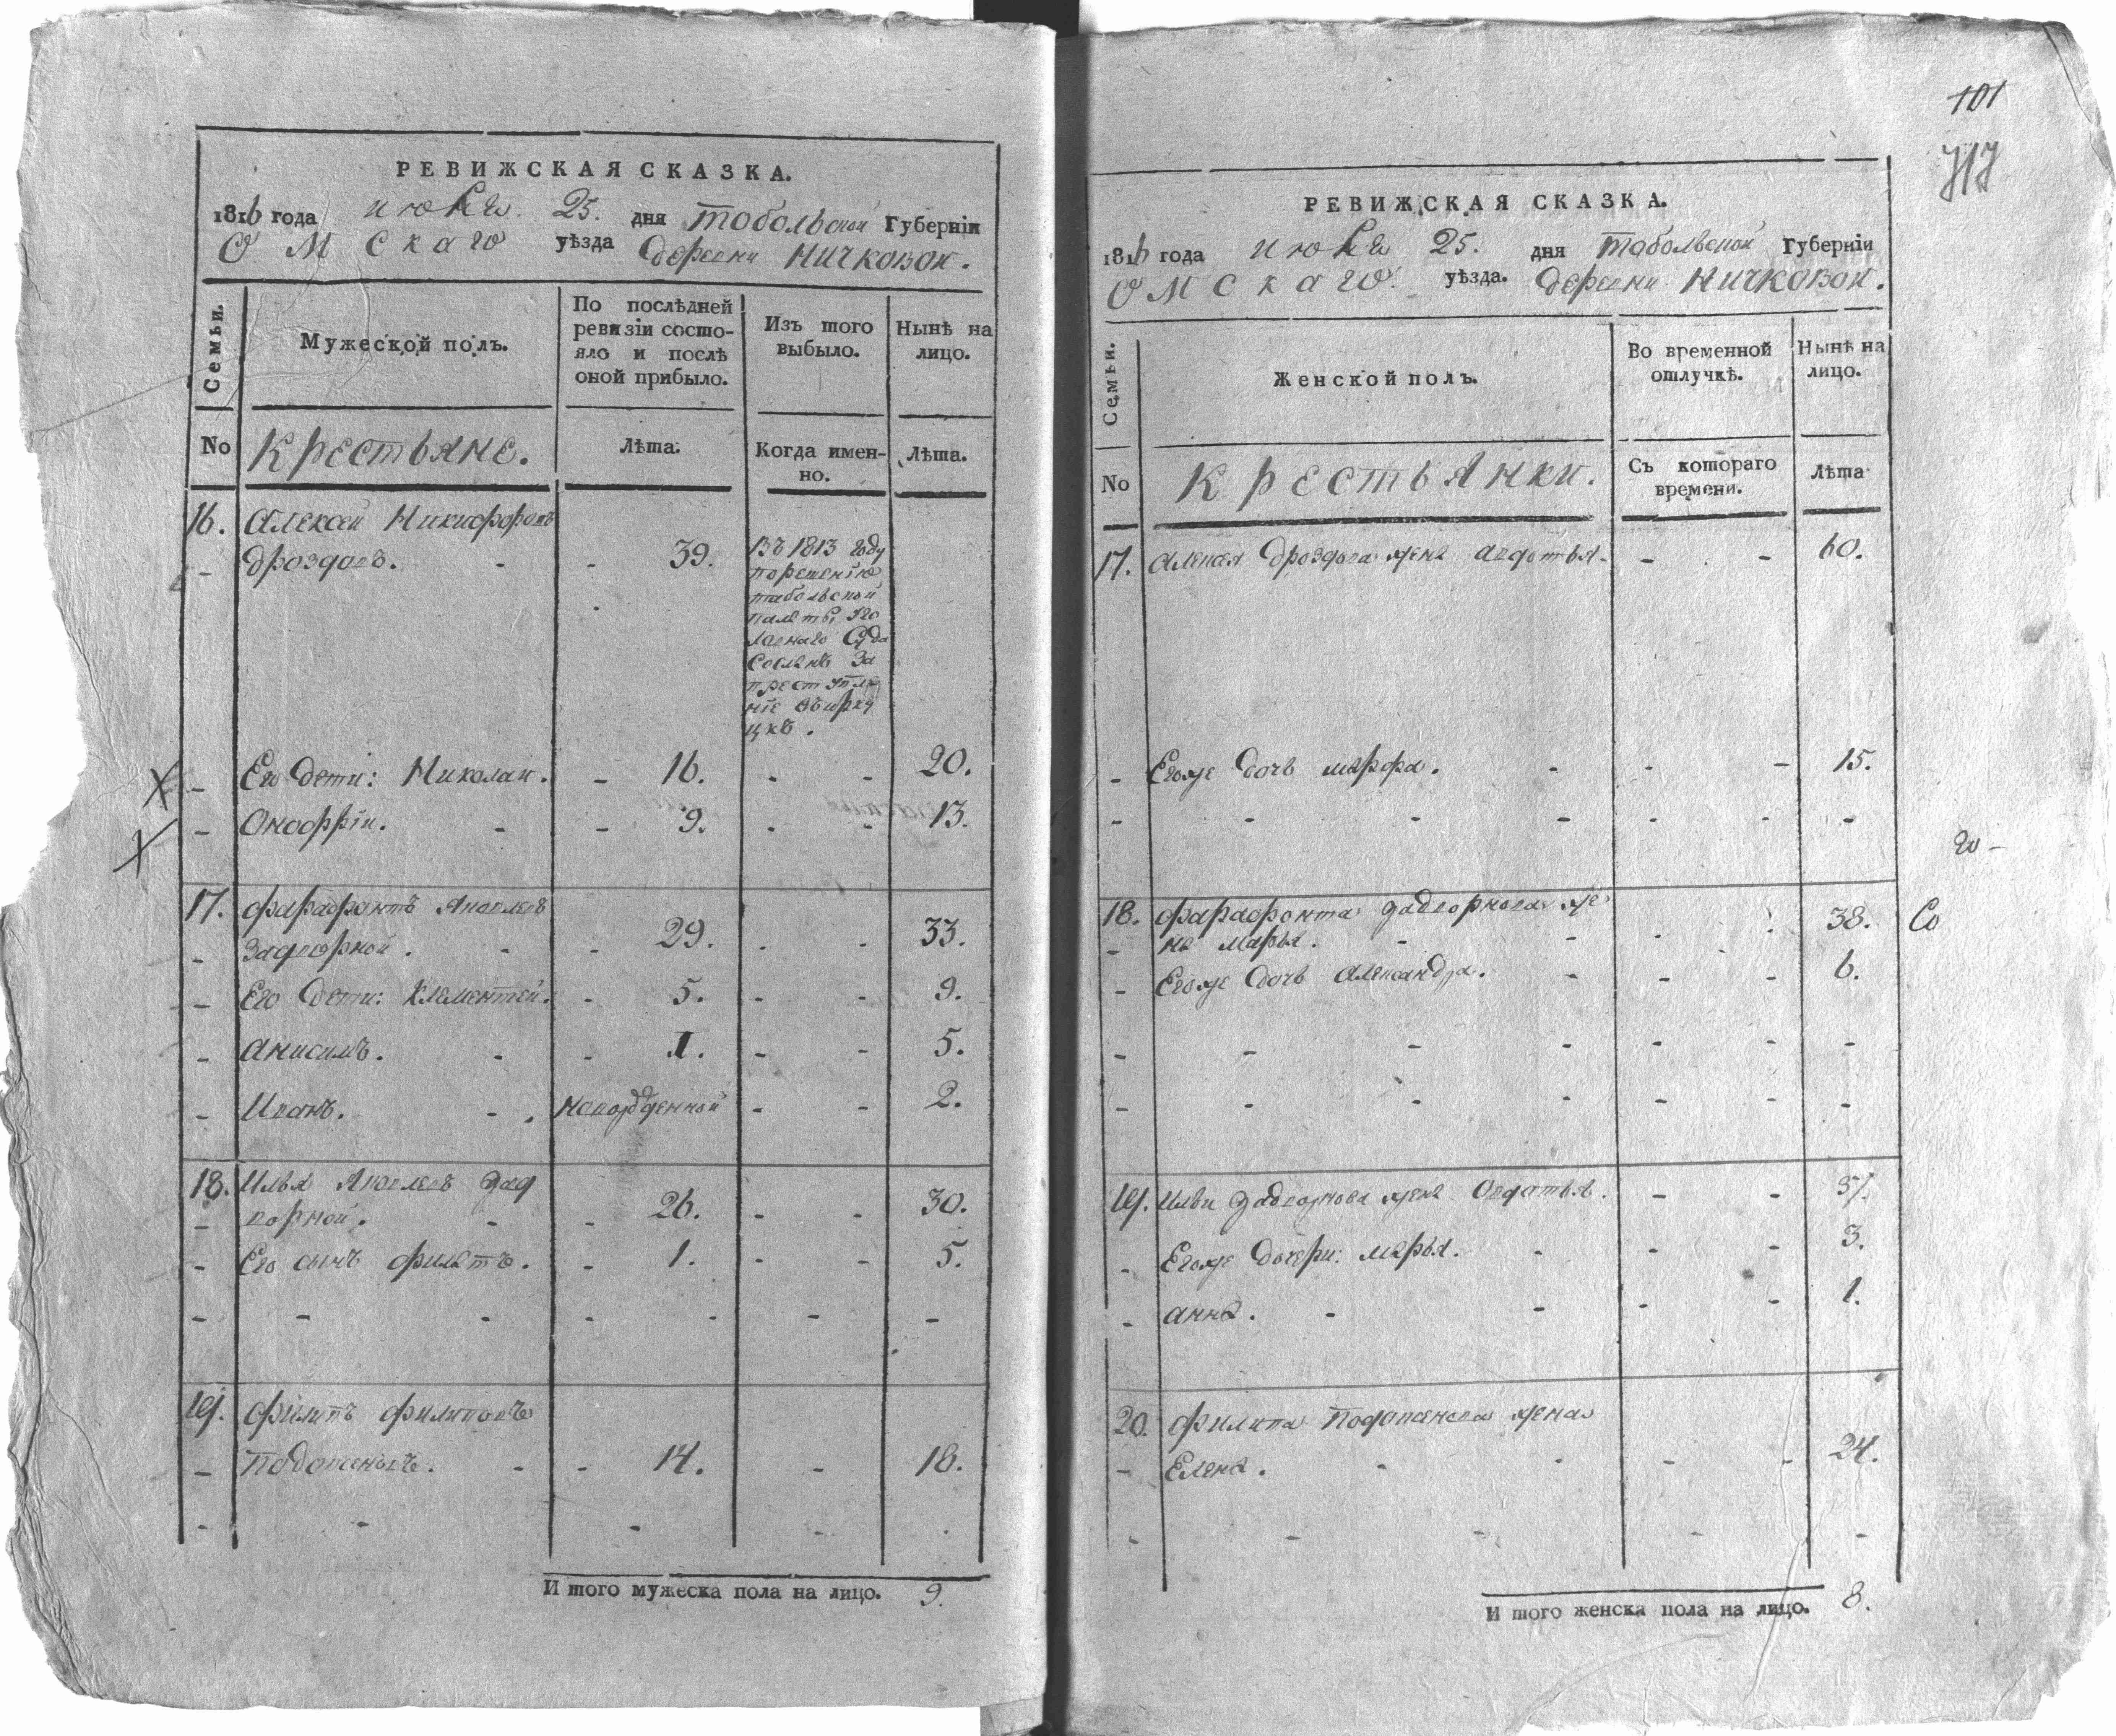 РЕВИЖСКАЯ СКАЗКА.
1816 года июля 25. дня Тобольской Губерніи
Омскаго уѣзда деревни Ничковой.
Семьи.
Мужеской полъ.
По послѣдней ревизіи состояло и послѣ оной прибыло.
Изъ того выбыло.
Нынѣ на лицо.
No
Крестьяне.
Лѣта.
Когда именно.
Лѣта.
16. Алексей Никифоровъ
Дроздовъ. - - 39.
Въ 1813 году
порешенію
тобольской
палаты уго
ловнаго Суда
Сосланъ За
преступле
ніе въ ирку
цкъ.
Его дети: Николай. - 16. - - 20.
Онофрій. - - 9. - - 13.
17. Фарафонтъ Яковлевъ
Задворной. - - 29. - - 33.
Его дети: Клементей. - 5. - - 9.
Анисимъ. - - 1. - - 5.
Иванъ. - - новорожденной - - 2.
18. Илья Яковлевъ Зад
ворной. - - 26. - - 30.
Его сынъ Филатъ. - 1. - - 5.
19. Филипъ Филиповъ
Подоксеновъ. - - 14. - 18.
И того мужеска пола на лицо. 9.
101
717
РЕВИЖСКАЯ СКАЗКА.
1816 года июля 25. дня Тобольской Губерніи
Омскаго уѣзда. деревни Ничковой.
Семьи.
Женской полъ.
Во временной отлучкѣ.
Нынѣ на лицо.
No
Крестьянки.
Съ котораго времени.
Лѣта
17. Алексея Дроздова жена Авдотья. - - 60.
- Егоже дочь Марфа. - - - 15.
го -
18. Фарафонта Задворнова же
на Марья. - - - 38.
Со
- Егоже дочь Александра. - - - 6.
19. Ильи Задворнова жена Овдотья. - - 37.
- Егоже дочери: Марья. - - - 3.
- Анна. - - - - 1.
20. Филипа Подоксенова жена
- Елена. - - - - 24.
И того женска пола на лицо. 8.